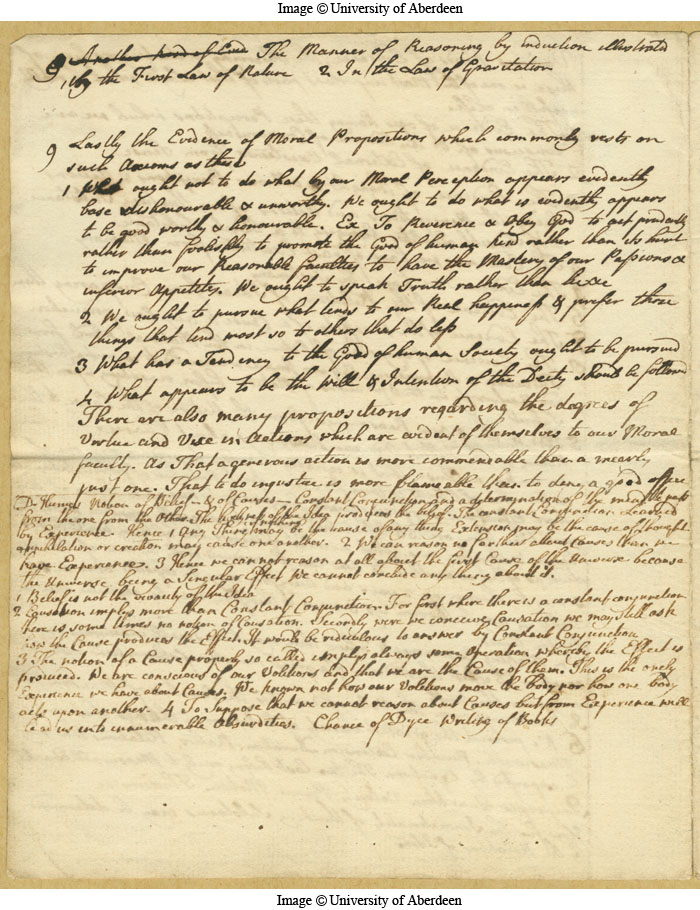 Image © University of Aberdeen
9 Another kind of Evid The Manner of Reasoning by induction illustrated
1 by the First Law of Nature 2 In the Law of Gravitation
9 Lastly the Evidence of Moral Propositions which commonly rests on
such Axioms as these
1 ought not to do what by our Moral Perception appears evidently
base dishonourable & unworthy. We ought to do what is evidently appears
to be good worthy & honourable. Ex To Reverence & Obey God to act prudently
rather than foolishly to promote the Good of human kind rather than its hurt
to improve our Reasonable faculties to have the Mastery of our Passions &
inferior Appetites. We ought to speak Truth rather than lie &c
2 We ought to pursue what tends to our Real happiness & prefer those
things that tend most so to others that do less
3 What has a Tendency to the Good of human Society ought to be pursued
4 What appears to be the Will & Intention of the Deity should be followed
There are also many propositions regarding the degrees of
Vertue and Vice in Actions which are evident of themselves to our Moral
faculty. As That a generous action is more commendable than a mearly
just one. That to do injustice is more blameable than to deny a good office
D. Humes Notion of Belief & of Causes Constant Conjunction and a determination of the mind to pass
from the one from the other. The of the Idea produces the belief. The constant Conjunction Learned
by Experience. Hence 1 Any Thing may be the cause of any thing Extension may be the cause of thought
annihilation or creation may cause one another. 2 We can reason no farther about causes than we
have Experience. 3 Hence we cannot reason at all about the first Cause of the Universe because
the Universe being a Singular Effect we cannot conclude any thing about it.
1 Belief is not the vivacity of the Idea
2 Causation implys more than Constant Conjunction. For first where there is a constant conjunction
there is some times no notion of Causation. Secondly were we conceive Causation we may still ask
how the Cause produces the Effect. It would be ridiculous to answer by Constant Conjunction
3 The notion of a Cause properly so called implys always some Operation whereby the Effect is
produced. We are conscious of our Volitions and that we are the Cause of them. This is the only
Experience we have about Causes. We know not how our Volitions move the body nor how one body
acts upon another. 4 To Suppose that we cannot reason about Causes but from Experience will
lead us into innumerable Absurdities. Chance of Dyce Writing of Books
Image © University of Aberdeen